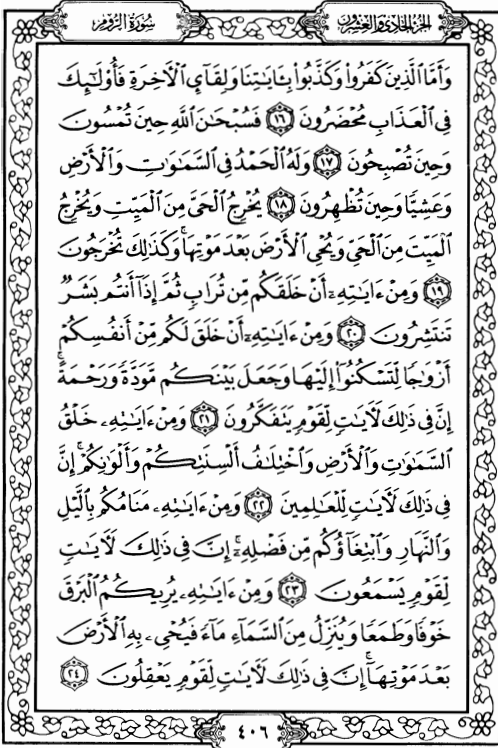 الجزء الحادي والعشرون
سورة الروم
وَأَمَّا ٱلَّذِينَ كَفَرُوا۟ وَكَذَّبُوا۟ بِـَٔايَٰتِنَا وَلِقَآئِ ٱلْءَاخِرَةِ فَأُو۟لَٰٓئِكَ
فِى ٱلْعَذَابِ مُحْضَرُونَ ١٦ فَسُبْحَٰنَ ٱللَّهِ حِينَ تُمْسُونَ
وَحِينَ تُصْبِحُونَ ١٧ وَلَهُ ٱلْحَمْدُ فِى ٱلسَّمَٰوَٰتِ وَٱلْأَرْضِ
وَعَشِيًّا وَحِينَ تُظْهِرُونَ ١٨ يُخْرِجُ ٱلْحَىَّ مِنَ ٱلْمَيِّتِ وَيُخْرِجُ
ٱلْمَيِّتَ مِنَ ٱلْحَىِّ وَيُحْىِ ٱلْأَرْضَ بَعْدَ مَوْتِهَا ۚ وَكَذَٰلِكَ تُخْرَجُونَ
١٩ وَمِنْ ءَايَٰتِهِۦٓ أَنْ خَلَقَكُم مِّن تُرَابٍ ثُمَّ إِذَآ أَنتُم بَشَرٌ
تَنتَشِرُونَ ٢٠ وَمِنْ ءَايَٰتِهِۦٓ أَنْ خَلَقَ لَكُم مِّنْ أَنفُسِكُمْ
أَزْوَٰجًا لِّتَسْكُنُوٓا۟ إِلَيْهَا وَجَعَلَ بَيْنَكُم مَّوَدَّةً وَرَحْمَةً ۚ
إِنَّ فِى ذَٰلِكَ لَءَايَٰتٍ لِّقَوْمٍ يَتَفَكَّرُونَ ٢١ وَمِنْ ءَايَٰتِهِۦ خَلْقُ
ٱلسَّمَٰوَٰتِ وَٱلْأَرْضِ وَٱخْتِلَٰفُ أَلْسِنَتِكُمْ وَأَلْوَٰنِكُمْ ۚ إِنَّ
فِى ذَٰلِكَ لَءَايَٰتٍ لِّلْعَٰلِمِينَ ٢٢ وَمِنْ ءَايَٰتِهِۦ مَنَامُكُم بِٱلَّيْلِ
وَٱلنَّهَارِ وَٱبْتِغَآؤُكُم مِّن فَضْلِهِۦٓ ۚ إِنَّ فِى ذَٰلِكَ لَءَايَٰتٍ
لِّقَوْمٍ يَسْمَعُونَ ٢٣ وَمِنْ ءَايَٰتِهِۦ يُرِيكُمُ ٱلْبَرْقَ
خَوْفًا وَطَمَعًا وَيُنَزِّلُ مِنَ ٱلسَّمَآءِ مَآءً فَيُحْىِۦ بِهِ ٱلْأَرْضَ
بَعْدَ مَوْتِهَآ ۚ إِنَّ فِى ذَٰلِكَ لَءَايَٰتٍ لِّقَوْمٍ يَعْقِلُونَ ٢٤
٤٠٦